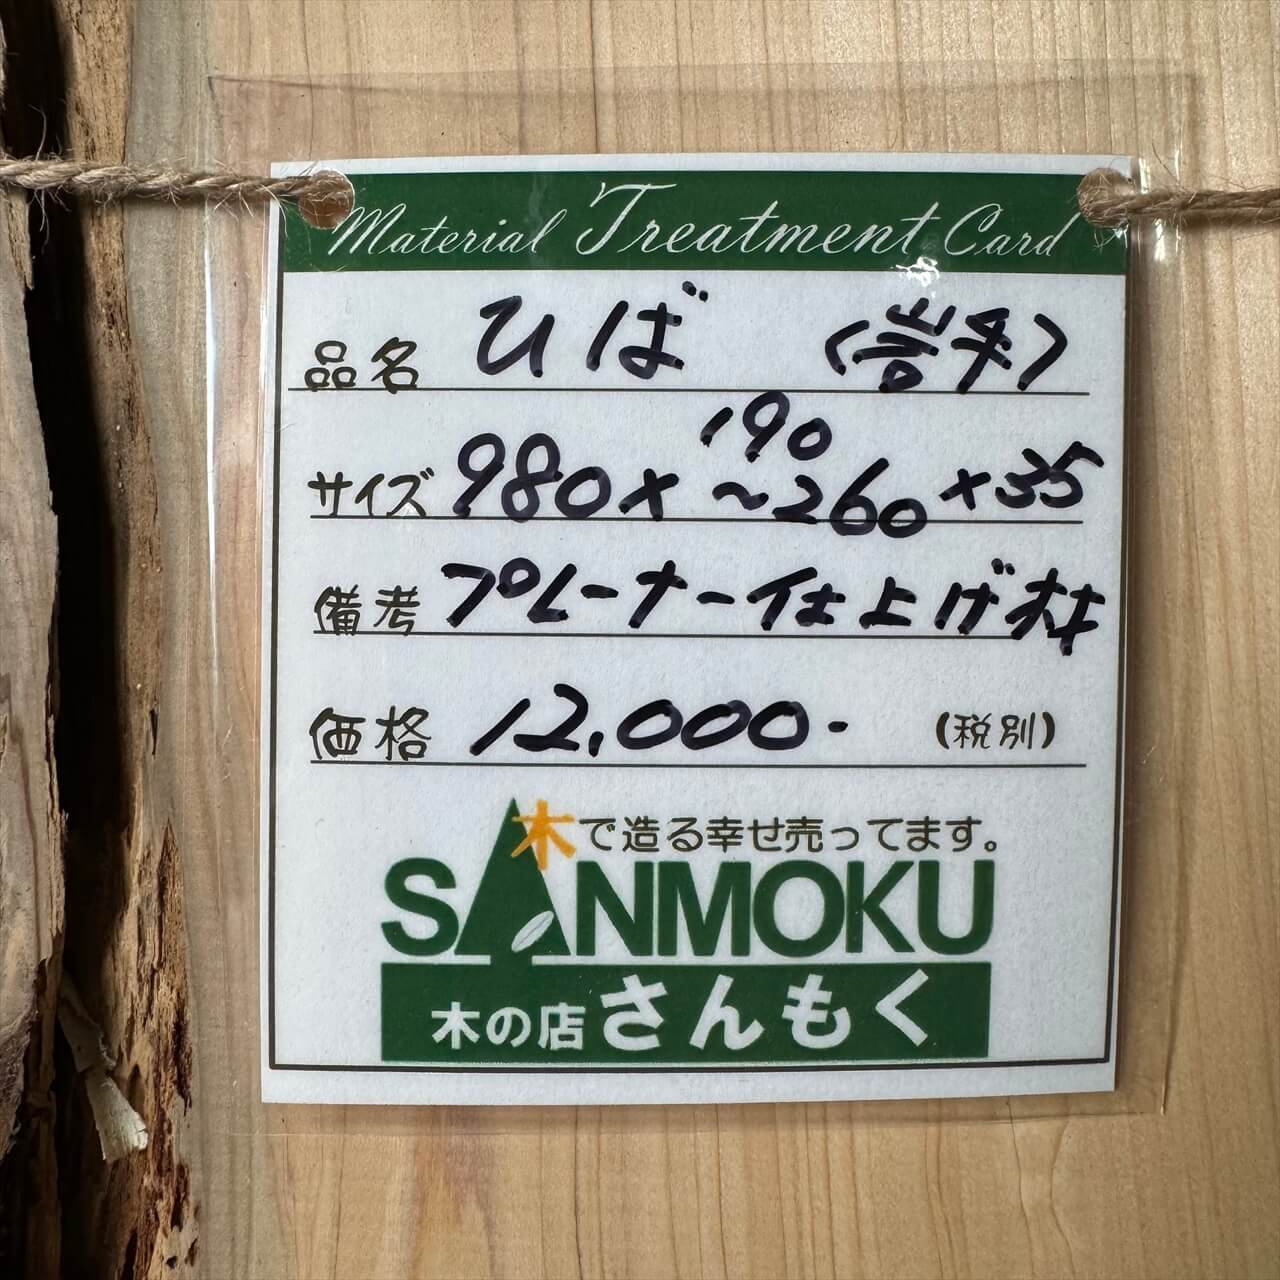 Material Treatment Card
品名 ひば (岩手)
サイズ 980 × 190~260 × 35
備考 プレーナー仕上げ材
価格 12,000- (税別)
木で造る幸せ売ってます。
SANMOKU
木の店 さんもく